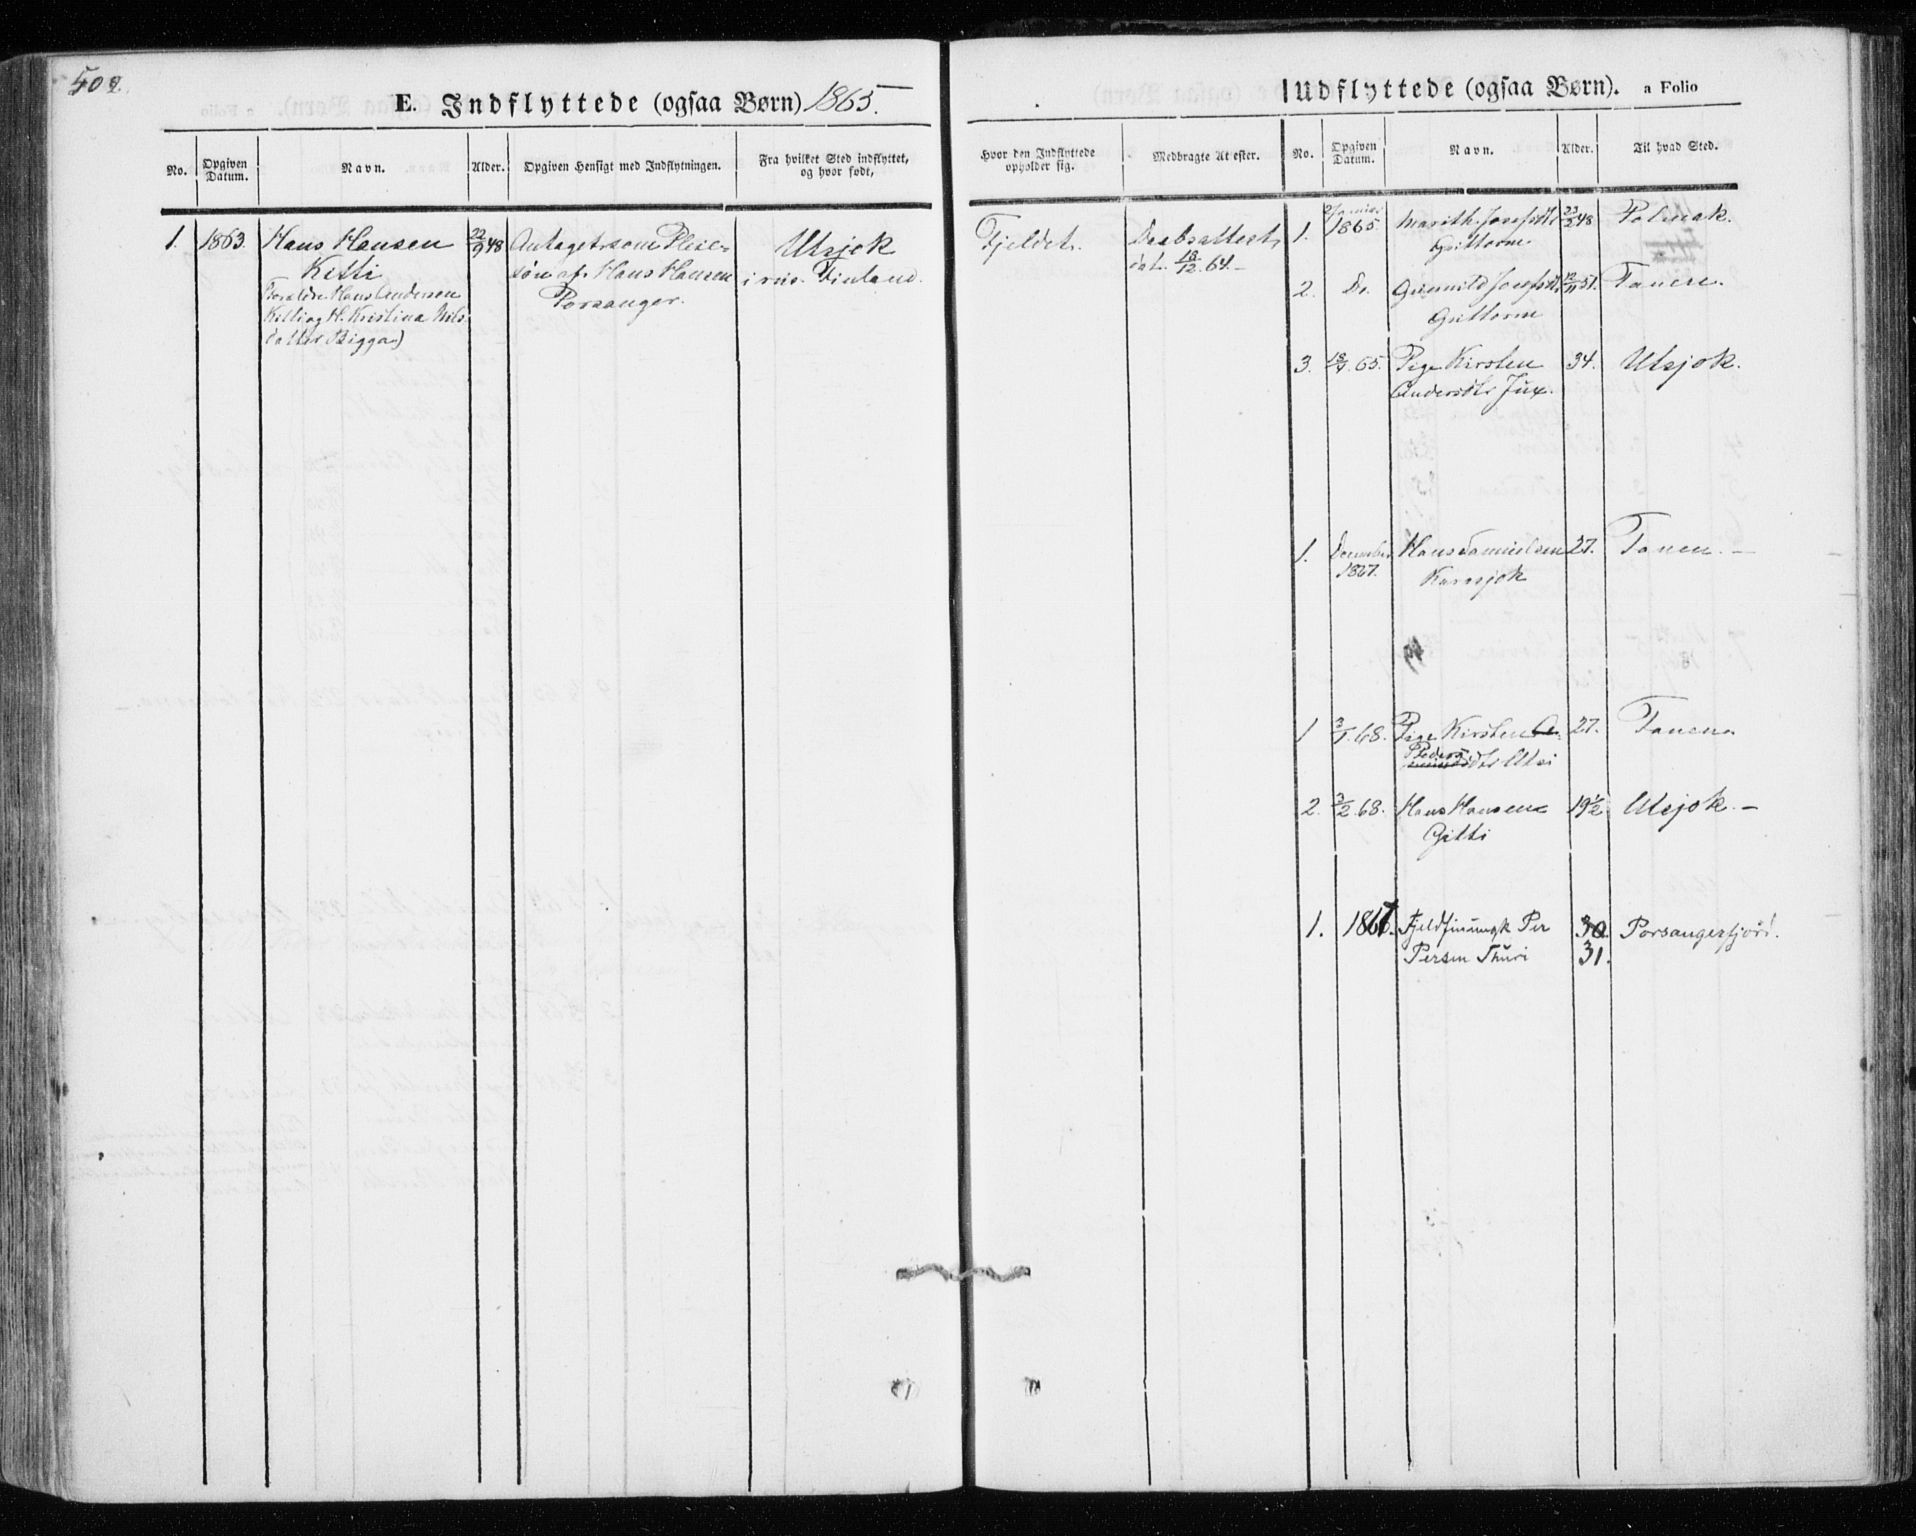 502.
E. Indflyttede (ogsaa Børn) 1865.
No.
Opgiven Datum.
Navn.
Alder.
Opgiven Hensigt med Indflytningen.
Fra hvilket Sted indflyttet, og hvor født,
1.
1863.
Hans Hansen
Kitti
Forældre Hans Andersen
Kitti og H. Kristina Nils
datter Bigga)
22/9 48
Antaget som Pleie-
søn af Hans Hansen
Porsanger.
Utsjok
i rus. Finland.
Udflyttede (ogsaa Børn). a Folio
Hvor den Indflyttede opholder sig.
Medbragte Attester.
No.
Opgiven Datum.
Navn.
Alder.
Til hvad Sted.
Fjeldet.
Daabsattest
dat. 18/12. 64.
1.
1865.
Marith Josefsdtr
Guttorm
23/2 48
Polmak.
2.
Do.
Gunnild Josefsdtr
Guttorm
12/11 51.
Tanen.
3.
65.
Pige Kirsten
Andersdtr Jux.
34.
Utsjok.
1.
December
1867.
Hans Samuelsen
Karasjok
27.
Tanen. —
1
3/1. 68.
Pige Kirsten
Peders
dtr Utsi
27.
Tanen.
2.
3/2 68.
Hans Hansen
Gitti
19 1/2
Utsjok. —
1.
1867.
Fjeldfinungk Per
Persen Thuri
30
31.
Porsangerfjord.